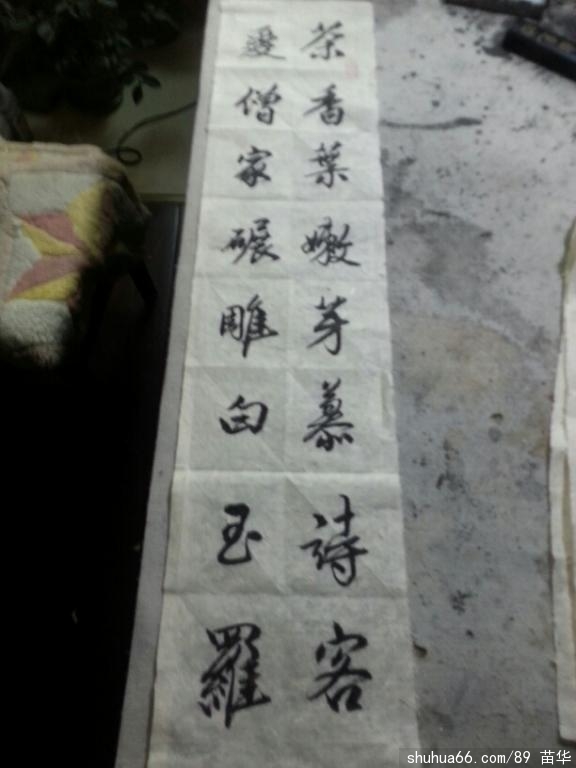 茶香葉嫩芽慕詩客
愛僧家碾雕白玉羅
shuhua66.com/89 苗华